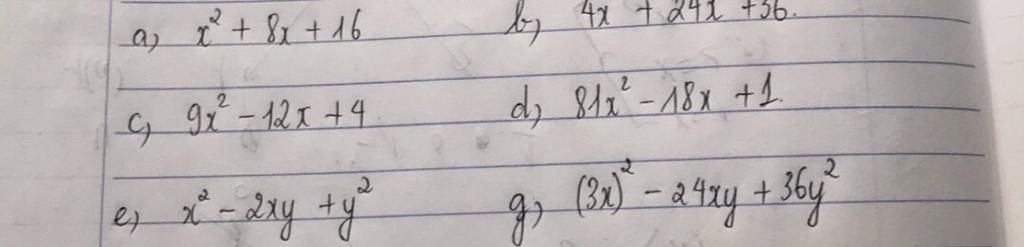 a) x² + 8x + 16 b) 4x + 24x + 36.
c) 9x² - 12x + 4 d) 81x² - 18x + 1.
e) x² - 2xy + y² g) (3x)² - 24xy + 36y²